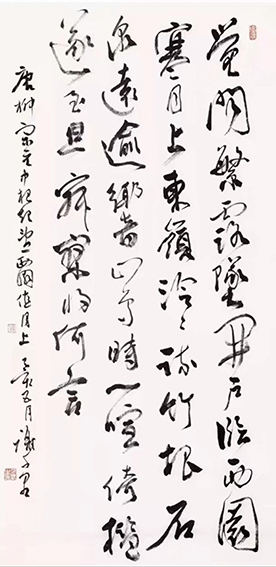 覺聞繁露墜開戶臨西園
寒月上東嶺泠泠疏竹根石
泉遠逾響山鳥時一喧倚楹
遂至旦寂寞將何言
唐柳宗元中夜起望西園值月上